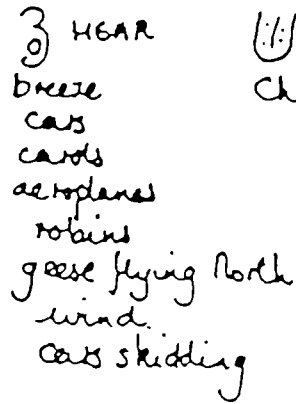 HEAR
breeze
cars
carols
aeroplanes
robins
geese flying North
wind.
cars skidding
Ch